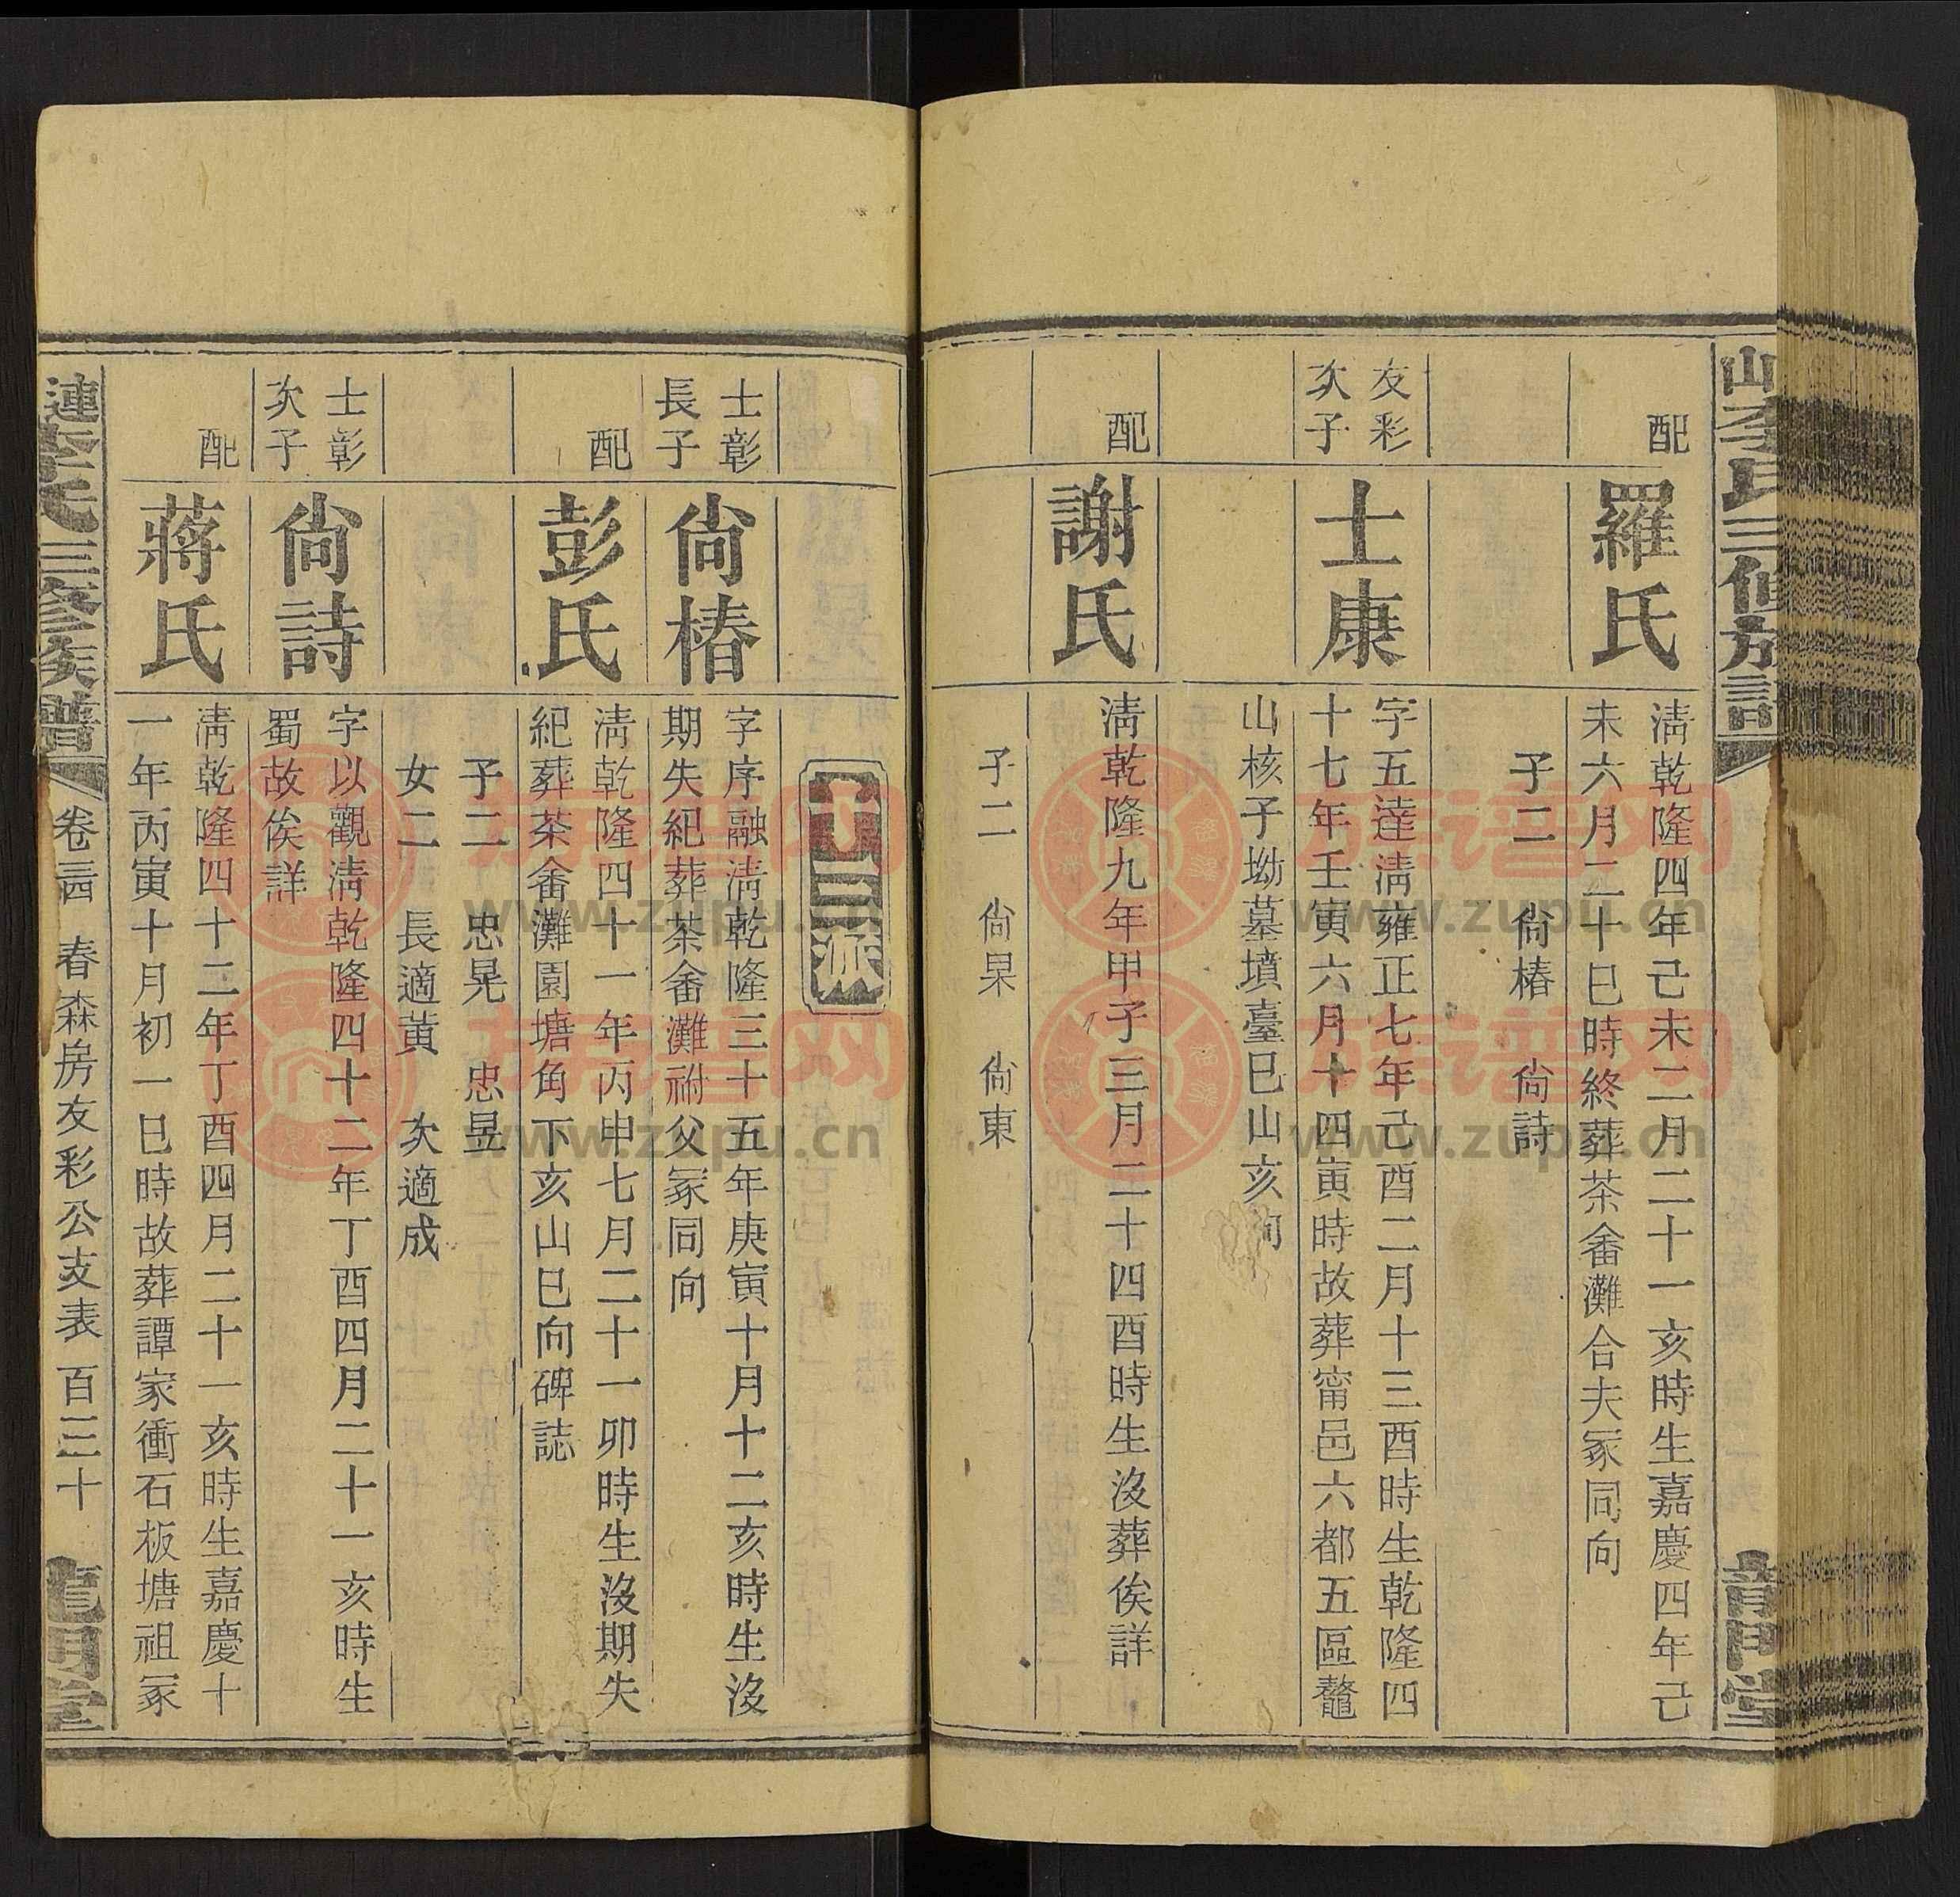 山李氏三修族譜
配
羅氏
清乾隆四年己未二月二十一亥時生嘉慶四年己
未六月二十巳時終葬茶畬灘合夫冢同向
子二 尙椿 尙詩
友彩
次子
士康
字五逹清雍正七年己酉二月十三酉時生乾隆四
十七年壬寅六月十四寅時故葬甯邑六都五區鼇
山核子坳墓墳臺巳山亥向
配
謝氏
清乾隆九年甲子三月二十四酉時生沒葬俟詳
子二 尙杲 尙東
派
士彰
長子
尙椿
字序融清乾隆三十五年庚寅十月十二亥時生沒
期失紀葬茶畬灘祔父冢同向
配
彭氏
清乾隆四十一年丙申七月二十一卯時生沒期失
紀葬茶畬灘園塘角下亥山巳向碑誌
子二 忠晃 忠昱
女二 長適黃 次適成
士彰
次子
尙詩
字以觀清乾隆四十二年丁酉四月二十一亥時生
蜀故俟詳
配
蔣氏
清乾隆四十二年丁酉四月二十一亥時生嘉慶十
一年丙寅十月初一巳時故葬譚家衝石板塘祖冢
漣李氏三修族譜 卷三四 春森房友彩公支表 百三十 龍明堂
族谱网
www.zupu.cn
族谱网
www.zupu.cn
族谱网
www.zupu.cn
族谱网
www.zupu.cn